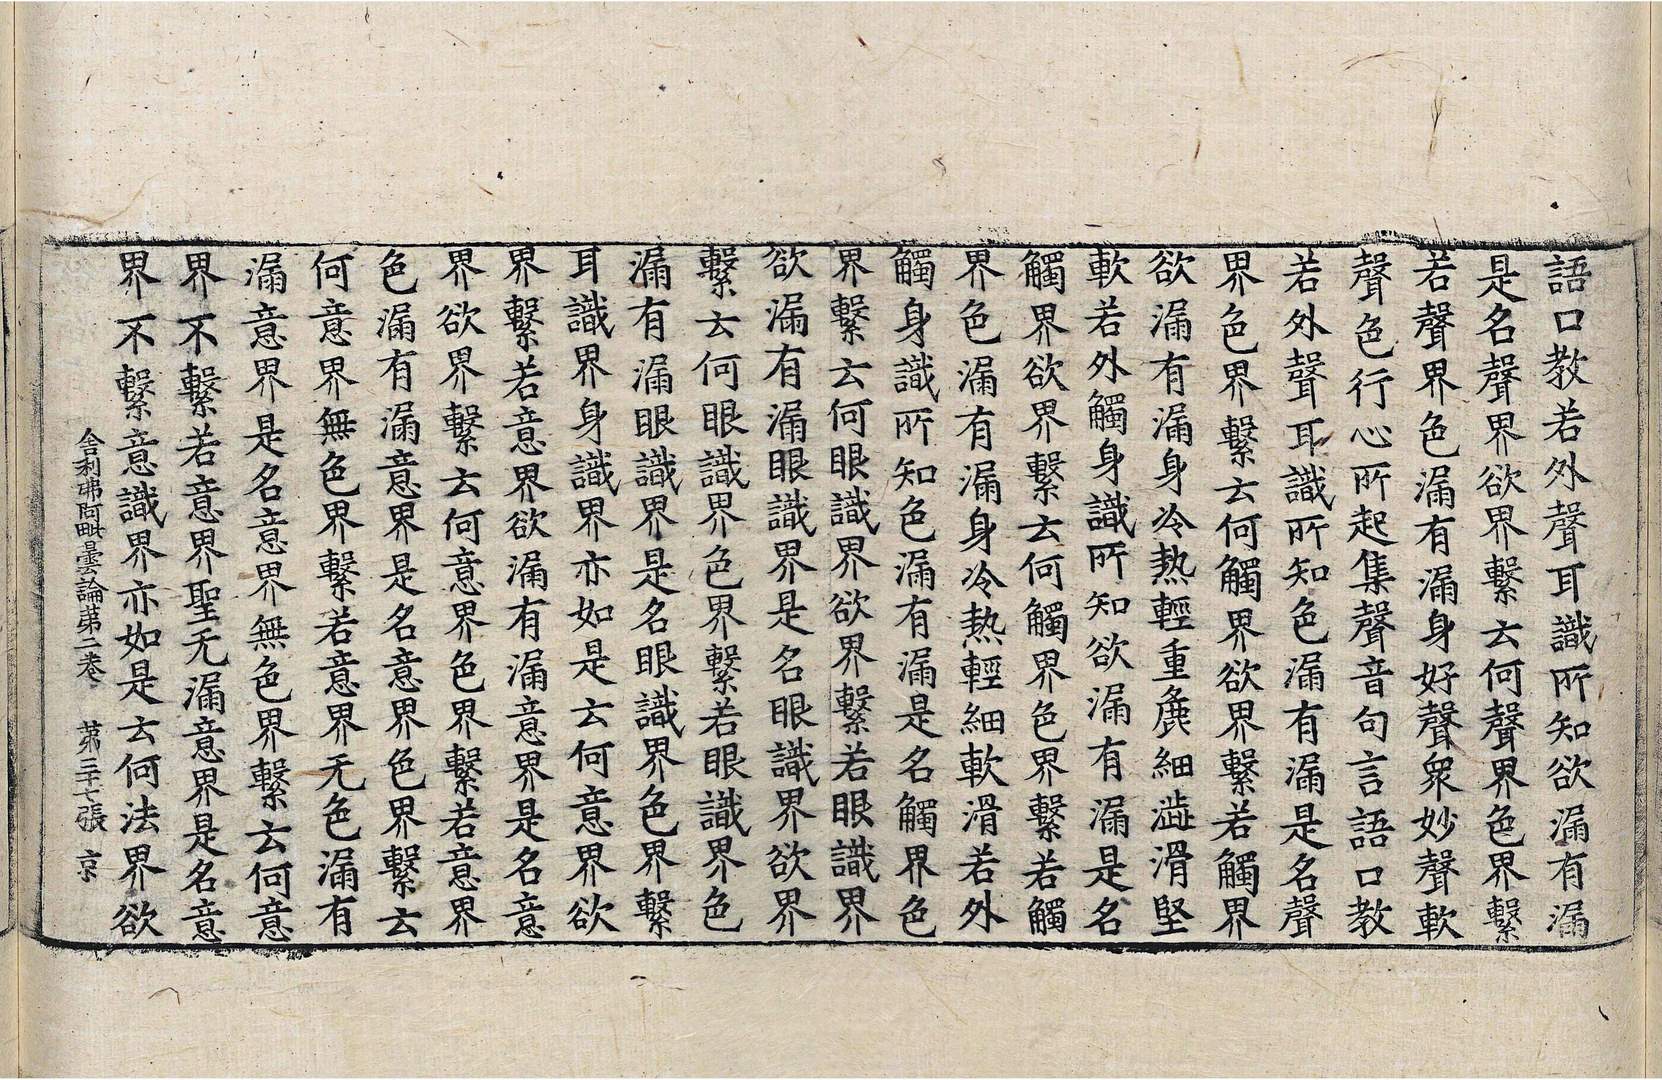 語口教若外聲耳識所知欲漏有漏
是名聲界欲界繫云何聲界色界繫
若聲界色漏有漏身好聲衆妙聲軟
聲色行心所起集聲音句言語口教
若外聲耳識所知色漏有漏是名聲
界色界繫云何觸界欲界繫若觸界
欲漏有漏身冷熱輕重麁細澁滑堅
軟若外觸身識所知欲漏有漏是名
觸界欲界繫云何觸界色界繫若觸
界色漏有漏身冷熱輕細軟滑若外
觸身識所知色漏有漏是名觸界色
界繫云何眼識界欲界繫若眼識界
欲漏有漏眼識界是名眼識界欲界
繫云何眼識界色界繫若眼識界色
漏有漏眼識界是名眼識界色界繫
耳識界身識界亦如是云何意界欲
界繫若意界欲漏有漏意界是名意
界欲界繫云何意界色界繫若意界
色漏有漏意界是名意界色界繫云
何意界無色界繫若意界无色漏有
漏意界是名意界無色界繫云何意
界不繫若意界聖无漏意界是名意
界不繫意識界亦如是云何法界欲
舍利弗阿毗曇論第二卷 第三十七張 京